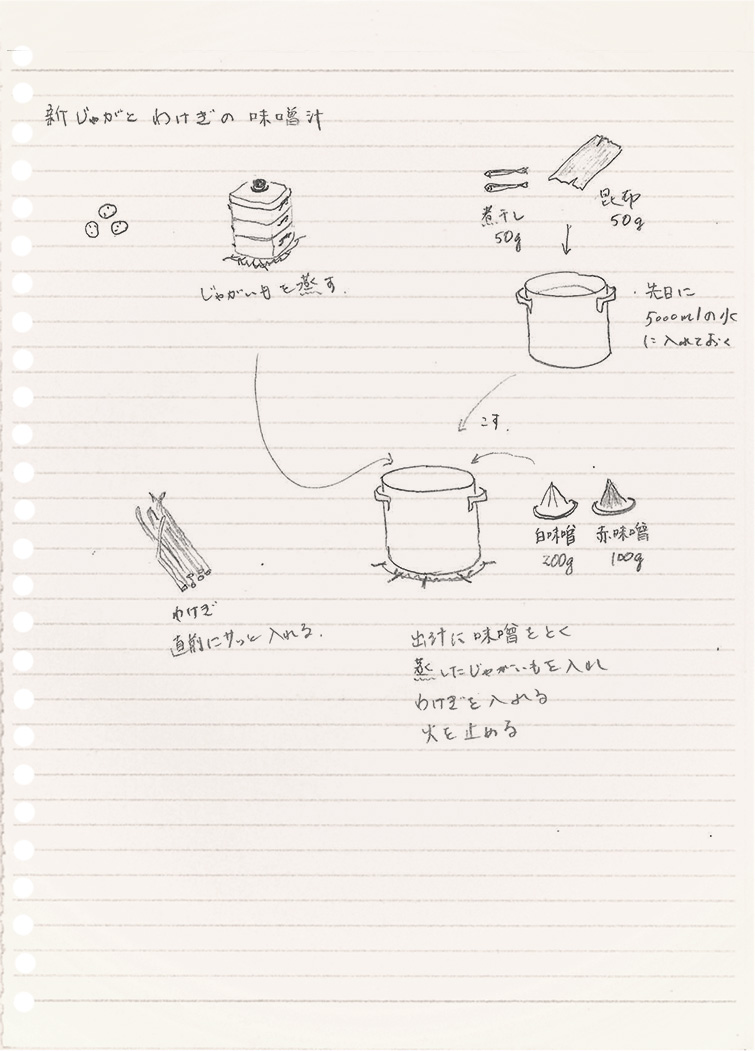 新じゃがと わけぎの 味噌汁
煮干し
50g
昆布
50g
じゃがいもを蒸す.
・先日に
5000mlの水
に入れておく
こす.
白味噌
200g
赤味噌
100g
わけぎ
直前にサッと入れる.
出汁に味噌をとく
蒸したじゃがいもを入れ
わけぎを入れる
火を止める